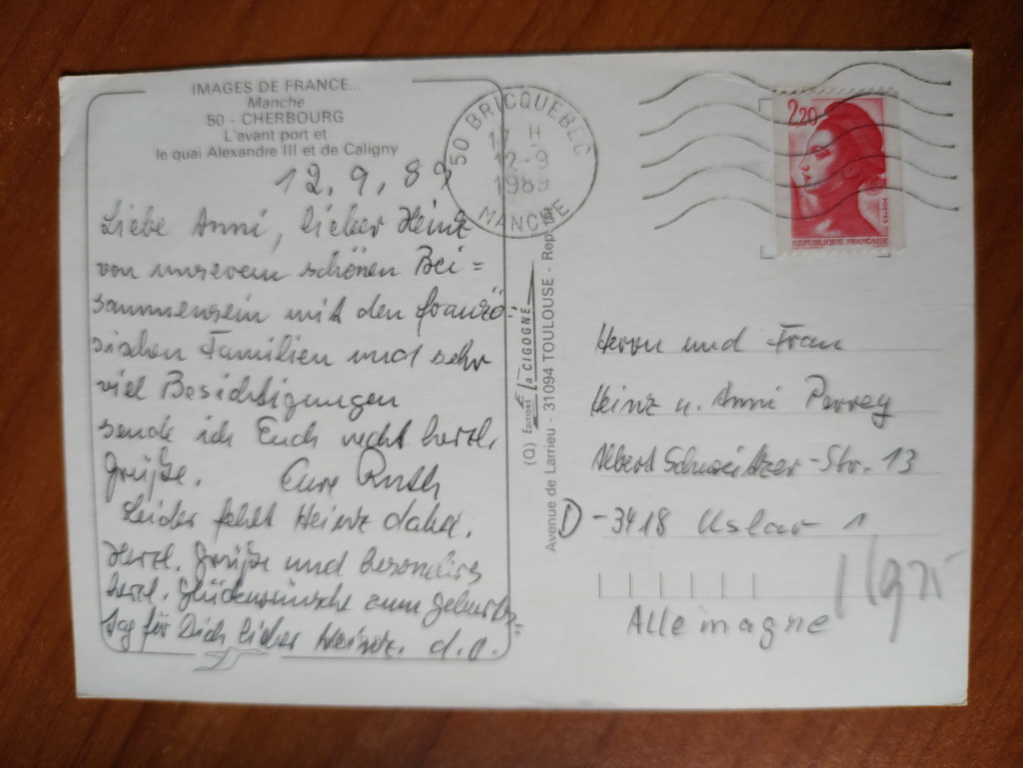 IMAGES DE FRANCE...
Manche
50 - CHERBOURG
L'avant port et
le quai Alexandre III et de Caligny
12.9.89
Liebe Anni, lieber Heinz
von unserem schönen Bei=
sammensein mit den franzö=
sischen Familien und sehr
viel Besichtigungen
sende ich Euch recht herzl.
Grüße. Eure Ruth
Leider fehlt Heinz dabei.
Herzl. Grüße und besonders
herzl. Glückwünsche zum Geburts=
tag für Dich lieber Heinz. d.O.
50 BRICQUEBEC
17 H
12-9
1989
MANCHE
(Q) Editions La CIGOGNE
Avenue de Larrieu - 31094 TOULOUSE - Rep.
2,20
POSTES
REPUBLIQUE FRANCAISE
Herrn und Frau
Heinz u. Anni Perrey
Albert Schweitzer-Str. 13
D-3418 Uslar 1
Allemagne